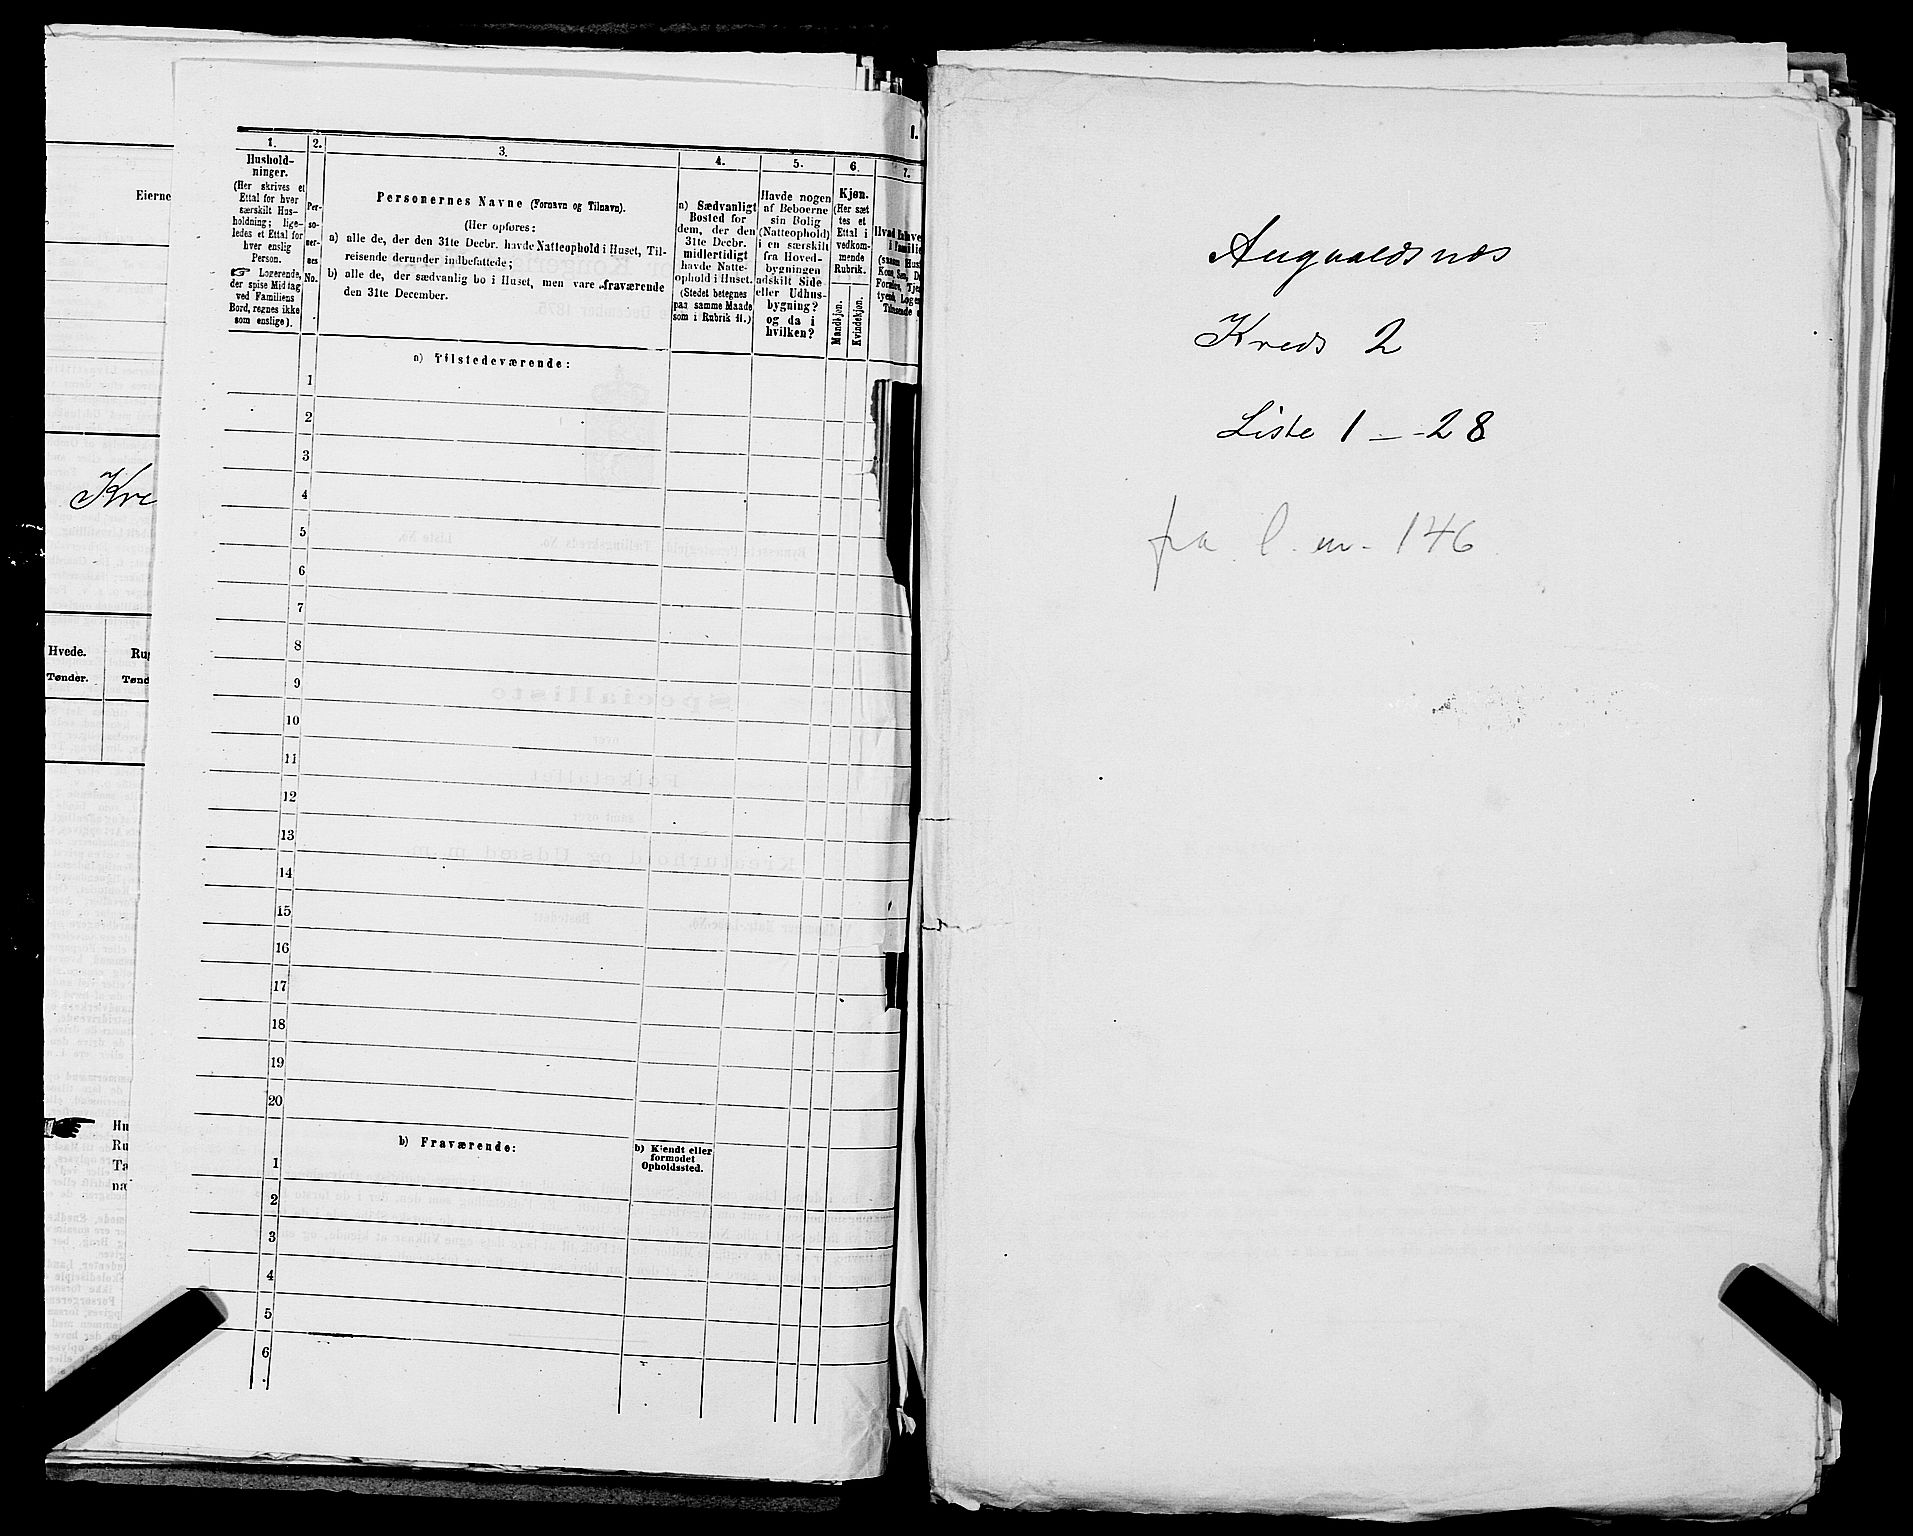 Eierne
Kre
Hvede.
Tønder.
Rug
Tønd
Hu
Ru
Ta
næ
I.
1.
Hushold-
ninger.
(Her skrives et
Ettal for hver
særskilt Hus-
holdning; lige-
ledes et Ettal for
hver enslig
Person.
☞ Logerende,
der spise Middag
ved Familiens
Bord, regnes ikke
som enslige).
2.
Per-
so-
ner-
nes
No.
3.
Personernes Navne (Fornavn og Tilnavn).
(Her opføres:
a) alle de, der den 31te Decbr. havde Natteophold i Huset, Til-
reisende derunder indbefattede;
b) alle de, der sædvanlig bo i Huset, men vare fraværende
den 31te December.
4.
a) Sædvanligt
Bosted for
dem, der den
31te Decbr.
midlertidigt
havde Natte-
ophold i Huset.
(Stedet betegnes
paa samme Maade
som i Rubrik 11.)
5.
Havde nogen
af Beboerne
sin Bolig
(Natteophold)
i en særskilt
fra Hoved-
bygningen
adskilt Side-
eller Udhus-
bygning?
og da i
hvilken?
6.
Kjøn.
(Her sæt
tes et
Ettal i
vedkom-
mende
Rubrik.
Mandkjøn.
Kvindekjøn.
7.
a) Tilstedeværende:
1
2
3
4
5
6
7
8
9
10
11
12
13
14
15
16
17
18
19
20
b) Fraværende:
b) Kjendt eller
formodet
Opholdssted.
1
2
3
4
5
6
Augvaldsnæs
Kreds 2
Liste 1 – 28
fra l. nr. 146